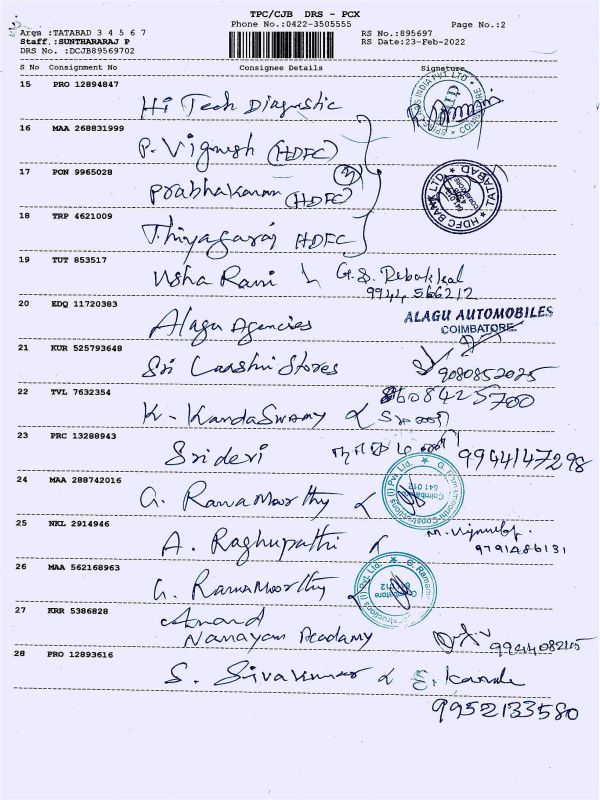 TPC/CJB DRS - PCX
Phone No.:0422-3505555
Page No.:2
Area :TATABAD 3 4 5 6 7
RS No.:895697
Staff.:SUNTHARARAJ P
RS Date:23-Feb-2022
DRS No. :DCJB89569702
S No Consignment No Consignee Details Signature
15 PRO 12894847
Hi Tech Diagnostic
16 MAA 268831999
P. Vignesh (HDFC)
17 PON 9965028
Prabhakaran (HDFC)
3
HDFC BANK LTD TATABAD
18 TRP 4621009
Thiyagaraj HDFC
19 TUT 853517
Usha Rani G.S. Rebakkal
9944 566212
20 EDQ 11720383
Alagu Agencies
ALAGU AUTOMOBILES
COIMBATORE.
21 KUR 525793648
Sri Laxshi Stores
9080852025
22 TVL 7632354
8608425700
K. KandaSwamy
23 PRC 13288943
Sridevi
9944147298
24 MAA 288742016
G. RamaMoorthy
G. Ramamoorthi Constructions (I) Pvt. Ltd.
Coimbatore
641 012
25 NKL 2914946
A. Raghupathi
9791486131
26 MAA 562168963
G. RamaMoorthy
27 KRR 5386828
Anand
Narayan Academy
28 PRO 12893616
S. Sivakumar
9952133580